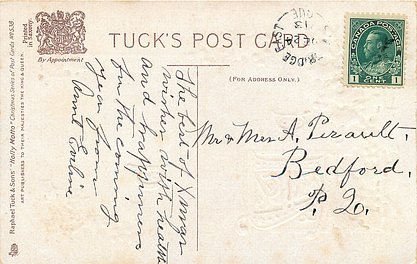 TUCK'S POST CARD
Printed
in Saxony.
By Appointment
(FOR ADDRESS ONLY.)
CANADA POSTAGE
1 ONE CENT 1
The best of Xmas
wishes with health
and happiness
for the coming
year from
Aunt Eveline
Mr & Mrs A. Perault.
Bedford.
P. Q.
Raphael Tuck & Sons' "Holly Motto" Christmas Series of Post Cards
ART PUBLISHERS TO THEIR MAJESTIES THE KING & QUEEN.